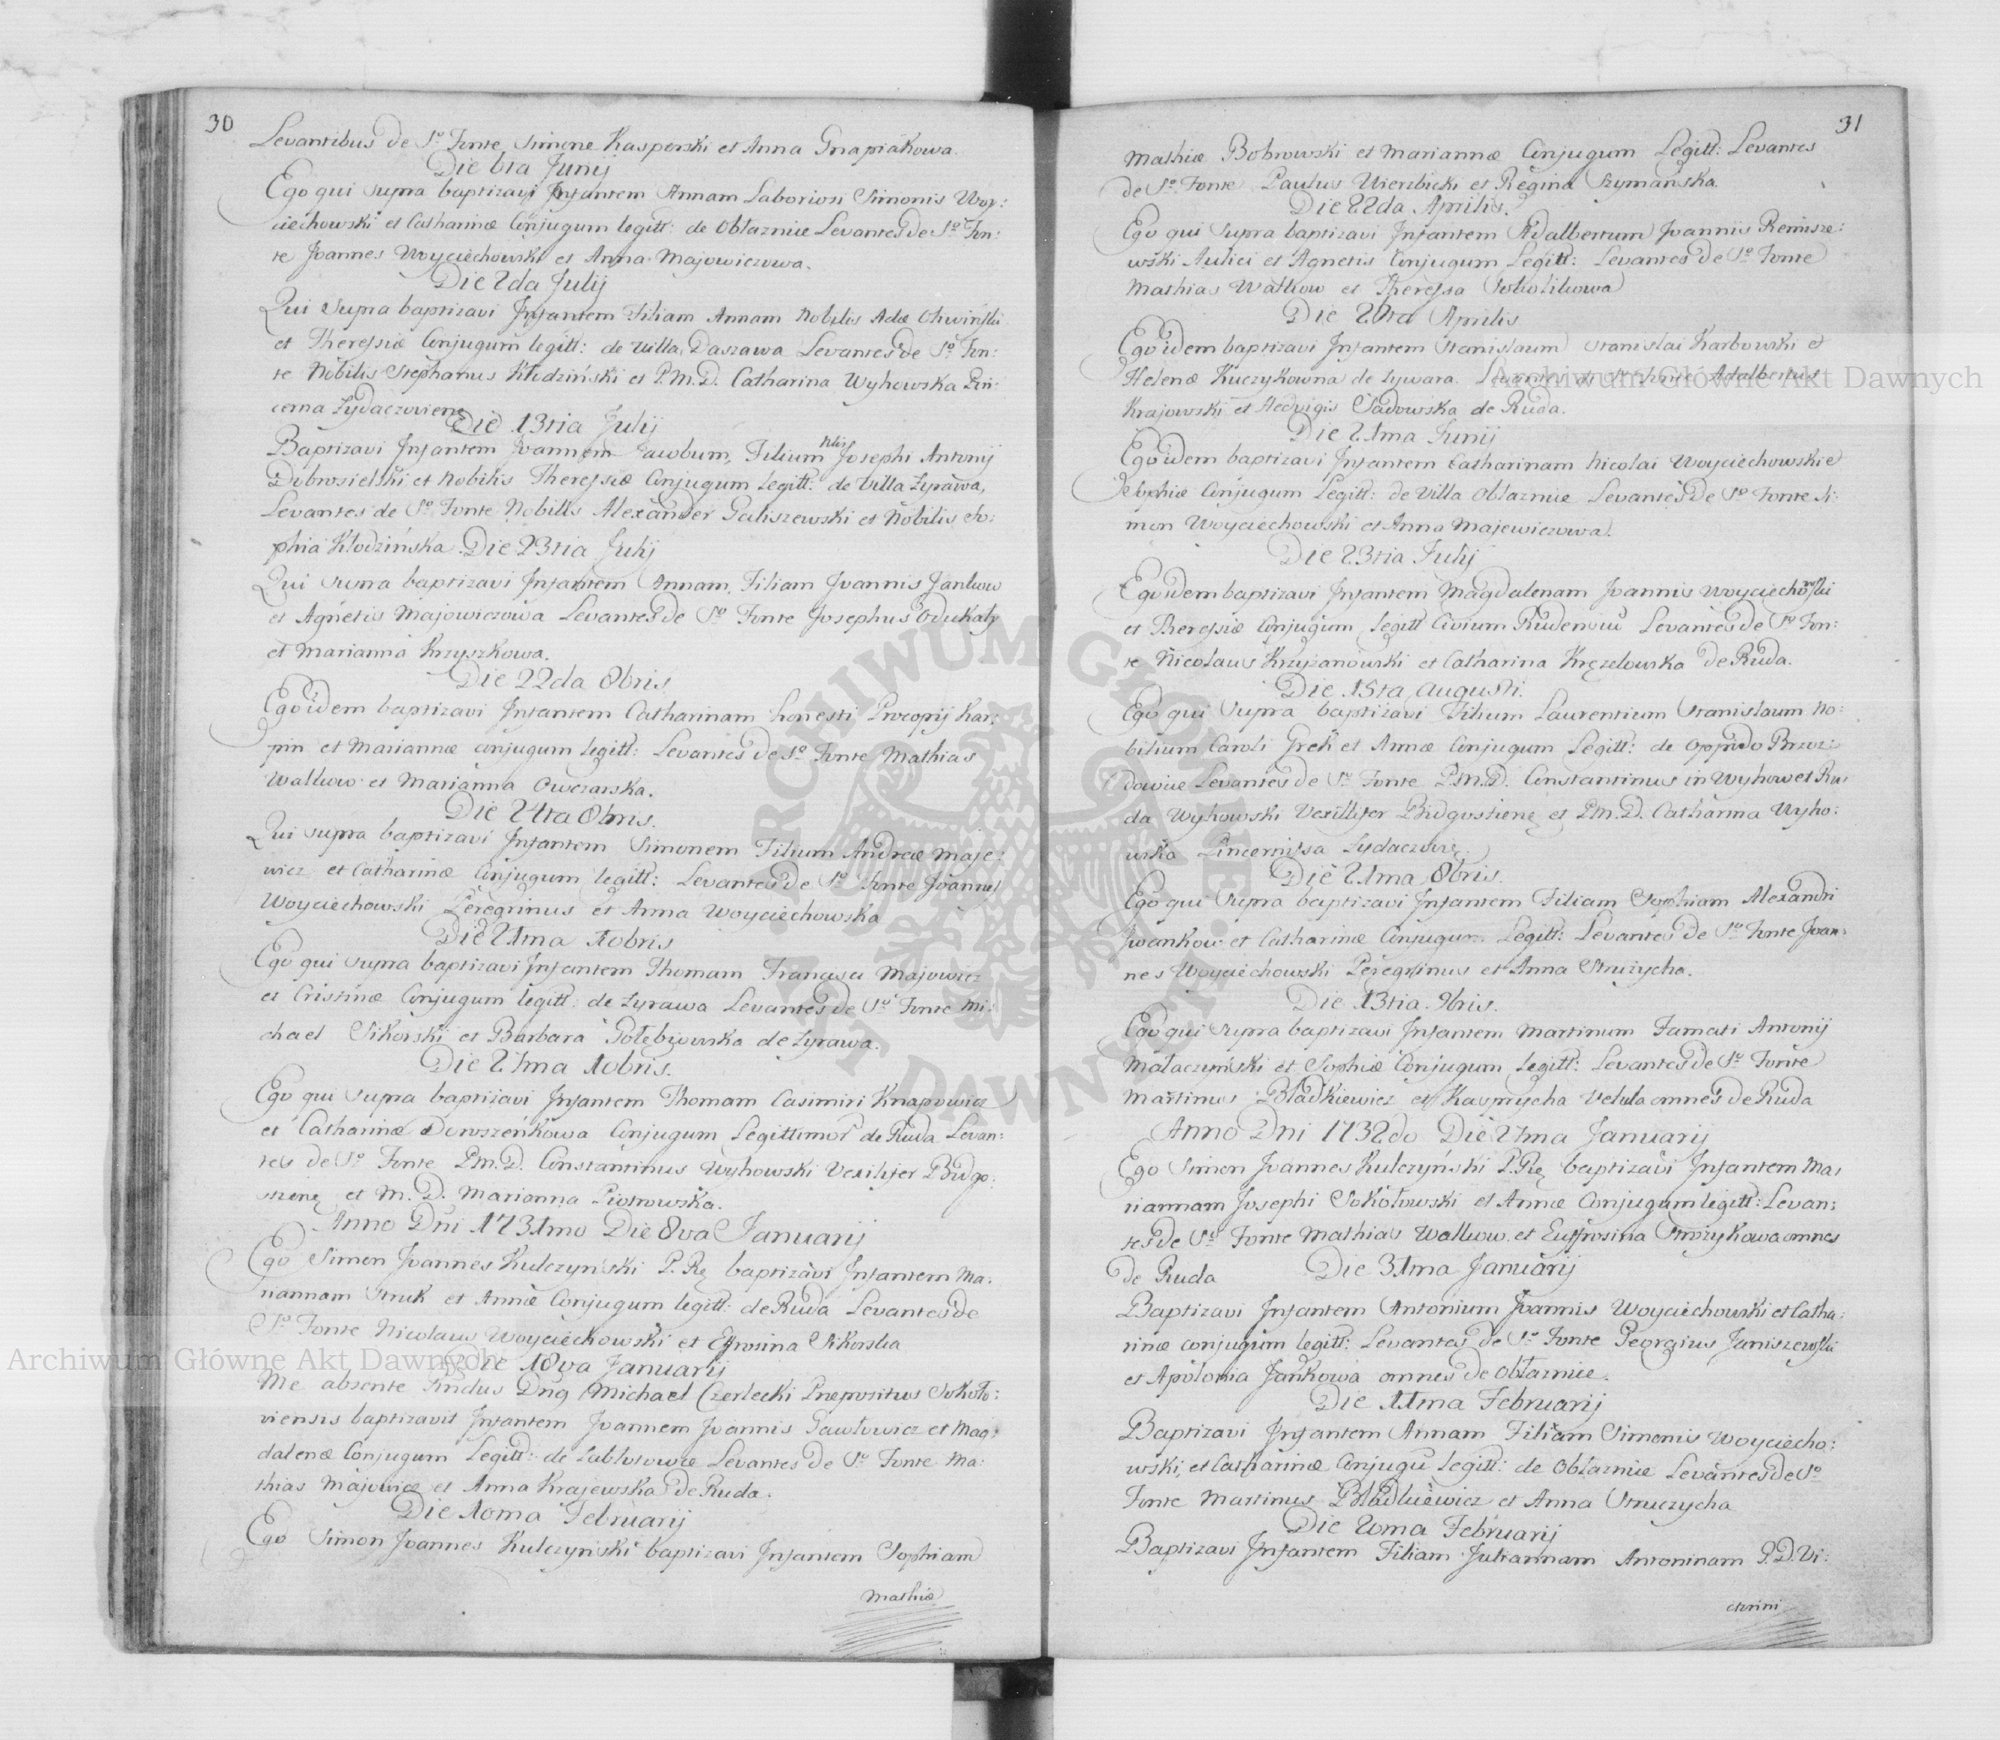 30
Levantibus de So Fonte Simone Kasperski et Anna Gnapiakowa.
Die 6ta Junij
Ego qui supra baptizavi Infantem Annam Laboriosi Simonis Woy:
ciechowski et Catharinæ Conjugum legitt: de Obłaznice Levantes de So Fon:
te Joannes Woyciechowski et Anna Majowiczowa.
Die 2da Julij
Qui supra baptizavi Infantem Filiam Annam Nobilis Adæ
et Theressiæ Conjugum legitt: de Villa Daszawa Levantes de So Fon:
te Nobilis Stephanus Kłodziński et P.M.D. Catharina Wyhowska Pin:
cerna Zydaczoviene
Die 13tia Julij
Baptizavi Infantem Joannem Jacobum, Filium Nlis Josephi Antonij
Dobrosielski et Nobilis Theressiæ Conjugum legitt: de Villa Zyrawa,
Levantes de So Fonte Nobilis Alexander Galiszewski et Nobilis So:
phia Kłodzińska. Die 23tia Julij
Qui supra baptizavi Infantem Annam, Filiam Joannis Jankow
et Agnetis Majowiczowa Levantes de So Fonte Josephus Odukały
et Marianna Krzyszkowa.
Die 22da 8bris
Ego idem baptizavi Infantem Catharinam honesti Procopij Kar:
pin et Mariannæ conjugum legitt: Levantes de So Fonte Mathias
Walkow et Marianna Owczarska.
Die 24ta 8bris.
Qui supra baptizavi Infantem Simonem Filium Andreæ Maje:
wicz et Catharinæ Conjugum legitt: Levantes de So Fonte Joannes
Woyciechowski Peregrinus et Anna Woyciechowska
Die 21ma 10bris
Ego qui supra baptizavi Infantem Thomam Francisci Majowicz
et Cristinæ Conjugum legitt: de Zyrawa Levantes de So Fonte Mi:
chael Sikorski et Barbara Gołębiowska de Zyrawa.
Die 21ma 10bris.
Ego qui supra baptizavi Infantem Thomam Casimiri Knapowicz
et Catharinæ Doroszenkowa Conjugum Legittimor de Ruda Levan:
tes de So Fonte P.M.D. Constantinus Wyhowski Vexilifer Bidgo:
stienę et M. D. Marianna Piotrowska.
Anno Dni 1731mo Die 8va Januarij
Ego Simon Joannes Kulczynski P. Rę baptizavi Infantem Ma:
riannam Struk et Annæ Conjugum legitt: de Ruda Levantes de
So Fonte Nicolaus Woyciechowski et Efrosina Sikorska
Die 18va Januarij
Me absente Michael Czerlecki Præpositus Sokoło:
viensis baptizavit Infantem Joannem Joannis Pawłowicz et Mag:
dalenæ Conjugum Legitt: de Lublotowce Levantes de So Fonte Ma:
thias Majowicz et Anna Krajewska de Ruda.
Die 10ma Februarij
Ego Simon Joannes Kulczynski baptizavi Infantem Sophiam
Mathiæ
31
Mathiæ Bobrowski et Mariannæ Conjugum Legitt: Levantes
de So Fonte Paulus Wierzbicki et Regina Szymańska.
Die 22da Aprilis.
Ego qui supra baptizavi Infantem Adalbertum Joannis Remisze:
wski Aulici et Agnetis Conjugum Legitt: Levantes de So Fonte
Mathias Walkow et Theressa
Die Aprilis
Ego idem baptizavi Infantem Stanislaum Stanislai Karbowski et
Helenæ Kuczykowna de Zywara. Levantes de So Fonte Adalbertus
Krajowski et Hedvigis Sadowska de Ruda.
Die 21ma Junij
Ego idem baptizavi Infantem Catharinam Nicolai Woyciechowski et
Sophiæ Conjugum Legitt: de Villa Obłaznice Levantes de So Fonte Si:
mon Woyciechowski et Anna Majewiczowa.
Die 23tia Julij
Ego idem baptizavi Infantem Magdalenam Joannis Woyciechowski
et Theressiæ Conjugum Legitt Civium Rudensiu Levantes de So Fon:
te Nicolaus Krzyżanowski et Catharina Kręzelowska de Ruda.
Die 15ta Augusti.
Ego qui supra baptizavi Filium Laurentium Stanislaum No:
bilium Caroli Grek et Annæ Conjugum Legitt: de Oppido Brzoz:
dowice Levantes de So Fonte P.M.D. Constantinus in Wyhow et Ru:
da Wyhowski Vexillifer Bidgostienę et P.M.D. Catharina Wyho:
wska Pincernissa
Die 21ma 8bris.
Ego qui supra baptizavi Infantem Filiam Sophiam Alexandri
Iwankow et Catharinæ Conjugum Legitt: Levantes de So Fonte Joan:
nes Woyciechowski Peregrinus et Anna Struzycha.
Die 13tia 9bris.
Ego qui supra baptizavi Infantem Martinum Famati Antonij
Małaczyński et Sophiæ Conjugum Legitt: Levantes de So Fonte
Martinus Bładkiewicz et Kasprzycha Vetula omnes de Ruda
Anno Dni 1732do Die 27ma Januarij
Ego Simon Joannes Kulczyński P.Rę baptizavi Infantem Ma:
riannam Josephi Sokołowski et Annæ Conjugum legitt: Levan:
tes de So Fonte Mathias Walkow et Eufrosina Strozykowa omnes
de Ruda Die 31ma Januarij
Baptizavi Infantem Antonium Joannis Woyciechowski et Catha:
rinæ conjugum legitt: Levantes de So Fonte Georgius Janiszewski
et Apolonia Jankowa omnes de Obłaznice.
Die 11ma Februarij
Baptizavi Infantem Annam Filiam Simonis Woyciecho:
wski, et Catharinæ Conjugu legitt: de Obłaznice Levantes de So
Fonte Martinus Bładkiewicz et Anna Struczycha
Die Februarij
Baptizavi Infantem Filiam Juliannam Antoninam P.D. Vi:
ctorini
Archiwum Główne Akt Dawnych
Archiwum Główne Akt Dawnych
ARCHIWUM GŁÓWNE AKT DAWNYCH